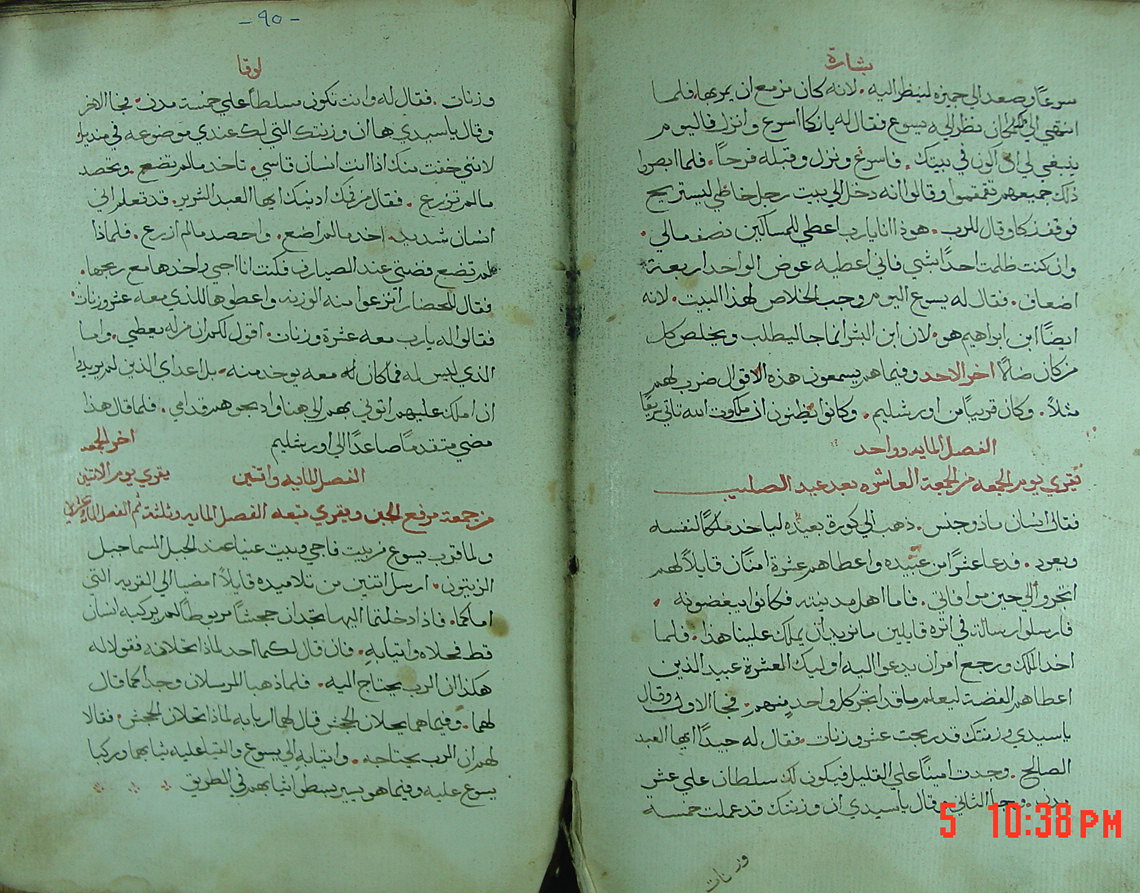 بشارة
سرعاً وصعد الي جميزه لينظر اليه. لانه كان مزمع ان يمر بها. فلما
انتهي الي المكان نظر اليه يسوع فقال له يا زكا اسرع وانزل فاليوم
ينبغي لي ان اكون في بيتك. فاسرع ونزل وقبله فرحاً. فلما ابصروا
ذلك جميعهم تقمقموا وقالوا انه دخل الي بيت رجل خاطي ليستريح
فوقف زكا وقال للرب. هوذا انا يا رب اعطي للمساكين نصف مالي.
وان كنت ظلمت احداً بشي فاني اعطيه عوض الواحد اربعة
اضعاف. فقال له يسوع اليوم وجب الخلاص لهذا البيت. لانه
ايضاً ابن ابراهيم هو. لان ابن البشر انما جا ليطلب ويخلص كل
من كان ضالاً اخر الاحد وفيما هم يسمعون هذه الاقوال ضرب لهم
مثلاً. وكان قريباً من اورشليم. وكانوا يظنون ان ملكوت الله تاتي سريعاً
الفصل المايه وواحد
تقري يوم الجمعه من الجمعة العاشره بعد عيد الصليب
فقال انسان ماذو جنس. ذهب الي كورة بعيده لياخد ملكاً لنفسه
ويعود. فدعا عشراً من عبيده واعطاهم عشرة امنان قايلاً لهم
اتجروا الي حين موافاتي. فاما اهل مدينته فكانوا يبغضونه.
فارسلوا رسالة في اثره قايلين ما نريد ان يملك علينا هذا. فلما
اخد الملك ورجع امر ان يدعوا اليه اوليك العشرة عبيد الذين
اعطاهم الفضة ليعلم ما قد اتجر كل واحدٍ منهم. فجا الاول وقال
يا سيدي وزنتك قد ربحت عشر وزنات. فقال له جيداً ايها العبد
الصالح. وجدت اميناً علي القليل فيكون لك سلطان علي عشر
مدن. وجا الثاني وقال يا سيدي ان وزنتك قد عملت خمسة
وزنات
- ٩٥ -
لوقا
وزنات. فقال له وانت تكون مسلطاً علي خمسة مدن. فجا الاخر
وقال يا سيدي ها ان وزنتك التي لك عندي موضوعه في منديل
لانني خفت منك اذ انت انسان قاسي. تاخد ما لم تضع. وتحصد
ما لم تزرع. فقال من فمك ادينك ايها العبد الشرير. قد تعلم اني
انسان شديد. اخد ما لم اضع. واحصد ما لم ازرع. فلماذا
لم تضع فضتي عند الصيارف فكنت انا اجي واخدها مع ربحها.
فقال للحضار انزعوا منه الوزنه واعطوها للذي معه عشر وزنات
فقالوا له يا رب معه عشرة وزنات. اقول لكم ان من له يعطي. واما
الذي ليس له فما كان له معه يوخد منه. بل اعداي الذين لم يريدوا
ان املك عليهم اتوني بهم الي هنا واذبحوهم قدامي. فلما قال هذا
مضي متقدماً صاعداً الي اورشليم اخر الجمعه
الفصل المايه واتنين يقري يوم الاتنين
من جمعة مرفع الجبن ويقري تبعه الفصل المايه وثلثة ثم الفصل
ولما قرب يسوع من بيت فاجي وبيت عنيا عند الجبل المسما جبل
الزيتون. ارسل اتنين من تلاميده قايلاً امضيا الي القريه التي
امامكما. فاذا دخلتما اليها تجدان جحشاً مربوطاً لم يركبه انسان
قط فحلاه واتيا به. فان قال لكما احد لماذا تحلانه فقولا له
هكذا ان الرب يحتاج اليه. فلما ذهبا المرسلان وجدا كما قال
لهما. وفيما هما يحلان الجحش قال لهما اربابه لماذا تحلان الجحش. فقالا
لهم ان الرب يحتاجه. واتيا به الي يسوع والقيا عليه ثيابهما وركبا
يسوع عليه وفيما هو يسير بسطوا ثيابهم في الطريق